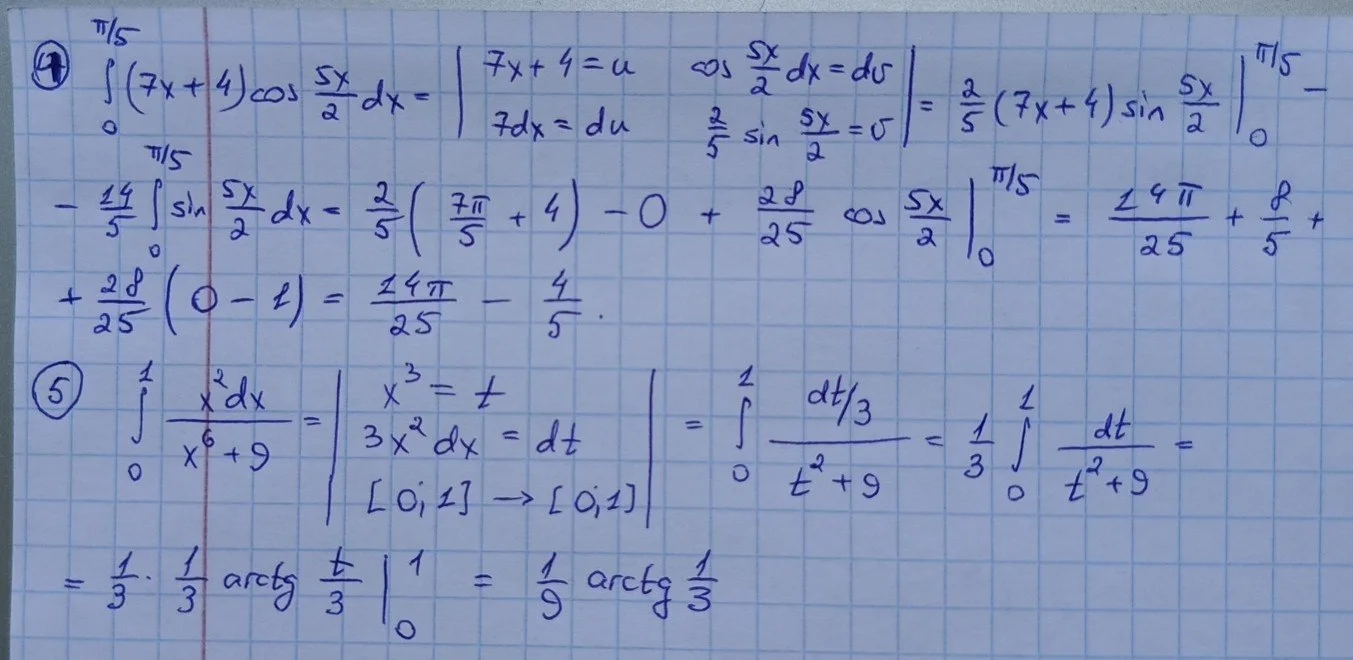 ④ ∫₀^{π/5} (7x + 4) cos \frac{5x}{2} dx = | 7x + 4 = u   cos \frac{5x}{2} dx = dv ; 7dx = du   \frac{2}{5} sin \frac{5x}{2} = v | = \frac{2}{5} (7x + 4) sin \frac{5x}{2} |₀^{π/5} −
− \frac{14}{5} ∫₀^{π/5} sin \frac{5x}{2} dx = \frac{2}{5} ( \frac{7π}{5} + 4 ) − 0 + \frac{28}{25} cos \frac{5x}{2} |₀^{π/5} = \frac{14π}{25} + \frac{8}{5} +
+ \frac{28}{25} ( 0 − 1 ) = \frac{14π}{25} − \frac{4}{5} .
⑤ ∫₀^1 \frac{x² dx}{x⁶ + 9} = | x³ = t ; 3x² dx = dt ; [0; 1] → [0; 1] | = ∫₀^1 \frac{dt/3}{t² + 9} = \frac{1}{3} ∫₀^1 \frac{dt}{t² + 9} =
= \frac{1}{3} · \frac{1}{3} arctg \frac{t}{3} |₀^1 = \frac{1}{9} arctg \frac{1}{3}